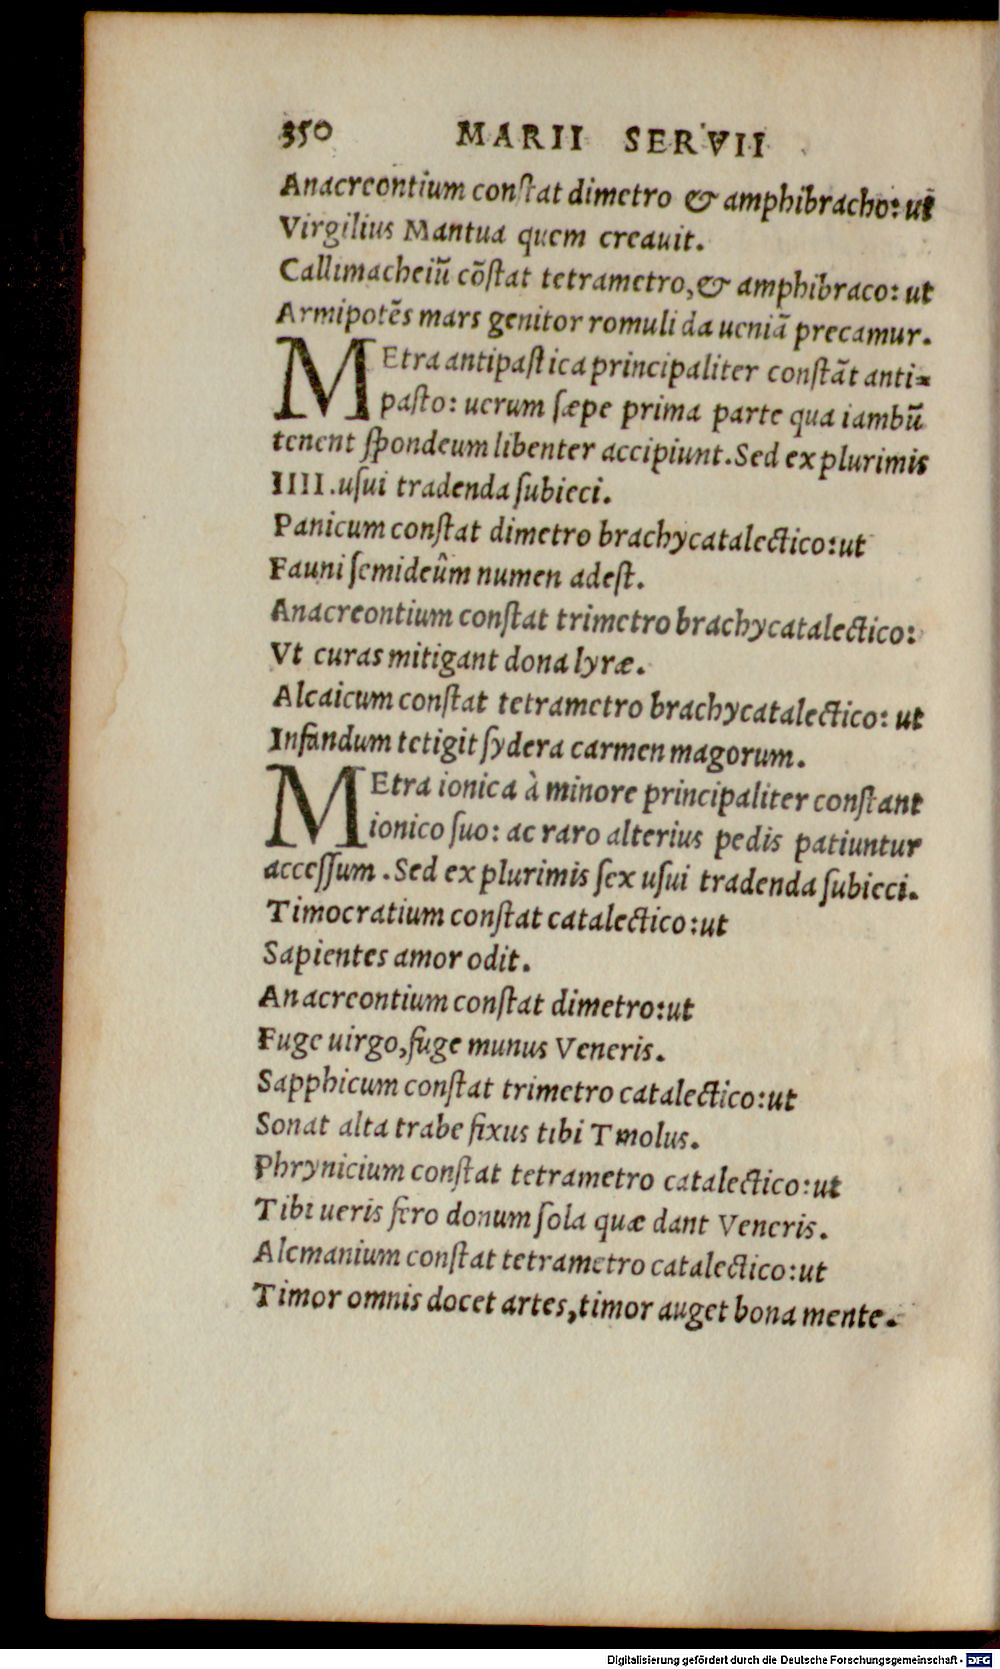 350 MARII SERVII
Anacreontium constat dimetro & amphibracho: ut
Virgilius Mantua quem creauit.
Callimacheiũ cõstat tetrametro, & amphibraco: ut
Armipotẽs mars genitor romuli da ueniã precamur.
MEtra antipastica principaliter constãt anti-
pasto: uerum sæpe prima parte qua iambũ
tenent spondeum libenter accipiunt. Sed ex plurimis
IIII. usui tradenda subieci.
Panicum constat dimetro brachycatalectico: ut
Fauni semideûm numen adest.
Anacreontium constat trimetro brachycatalectico:
Vt curas mitigant dona lyræ.
Alcaicum constat tetrametro brachycatalectico: ut
Infandum tetigit sydera carmen magorum.
MEtra ionica à minore principaliter constant
ionico suo: ac raro alterius pedis patiuntur
accessum. Sed ex plurimis sex usui tradenda subieci.
Timocratium constat catalectico: ut
Sapientes amor odit.
Anacreontium constat dimetro: ut
Fuge uirgo, fuge munus Veneris.
Sapphicum constat trimetro catalectico: ut
Sonat alta trabe fixus tibi Tmolus.
Phrynicium constat tetrametro catalectico: ut
Tibi ueris fero donum sola quæ dant Veneris.
Alcmanium constat tetrametro catalectico: ut
Timor omnis docet artes, timor auget bona mente.
Digitalisierung gefördert durch die Deutsche Forschungsgemeinschaft - DFG